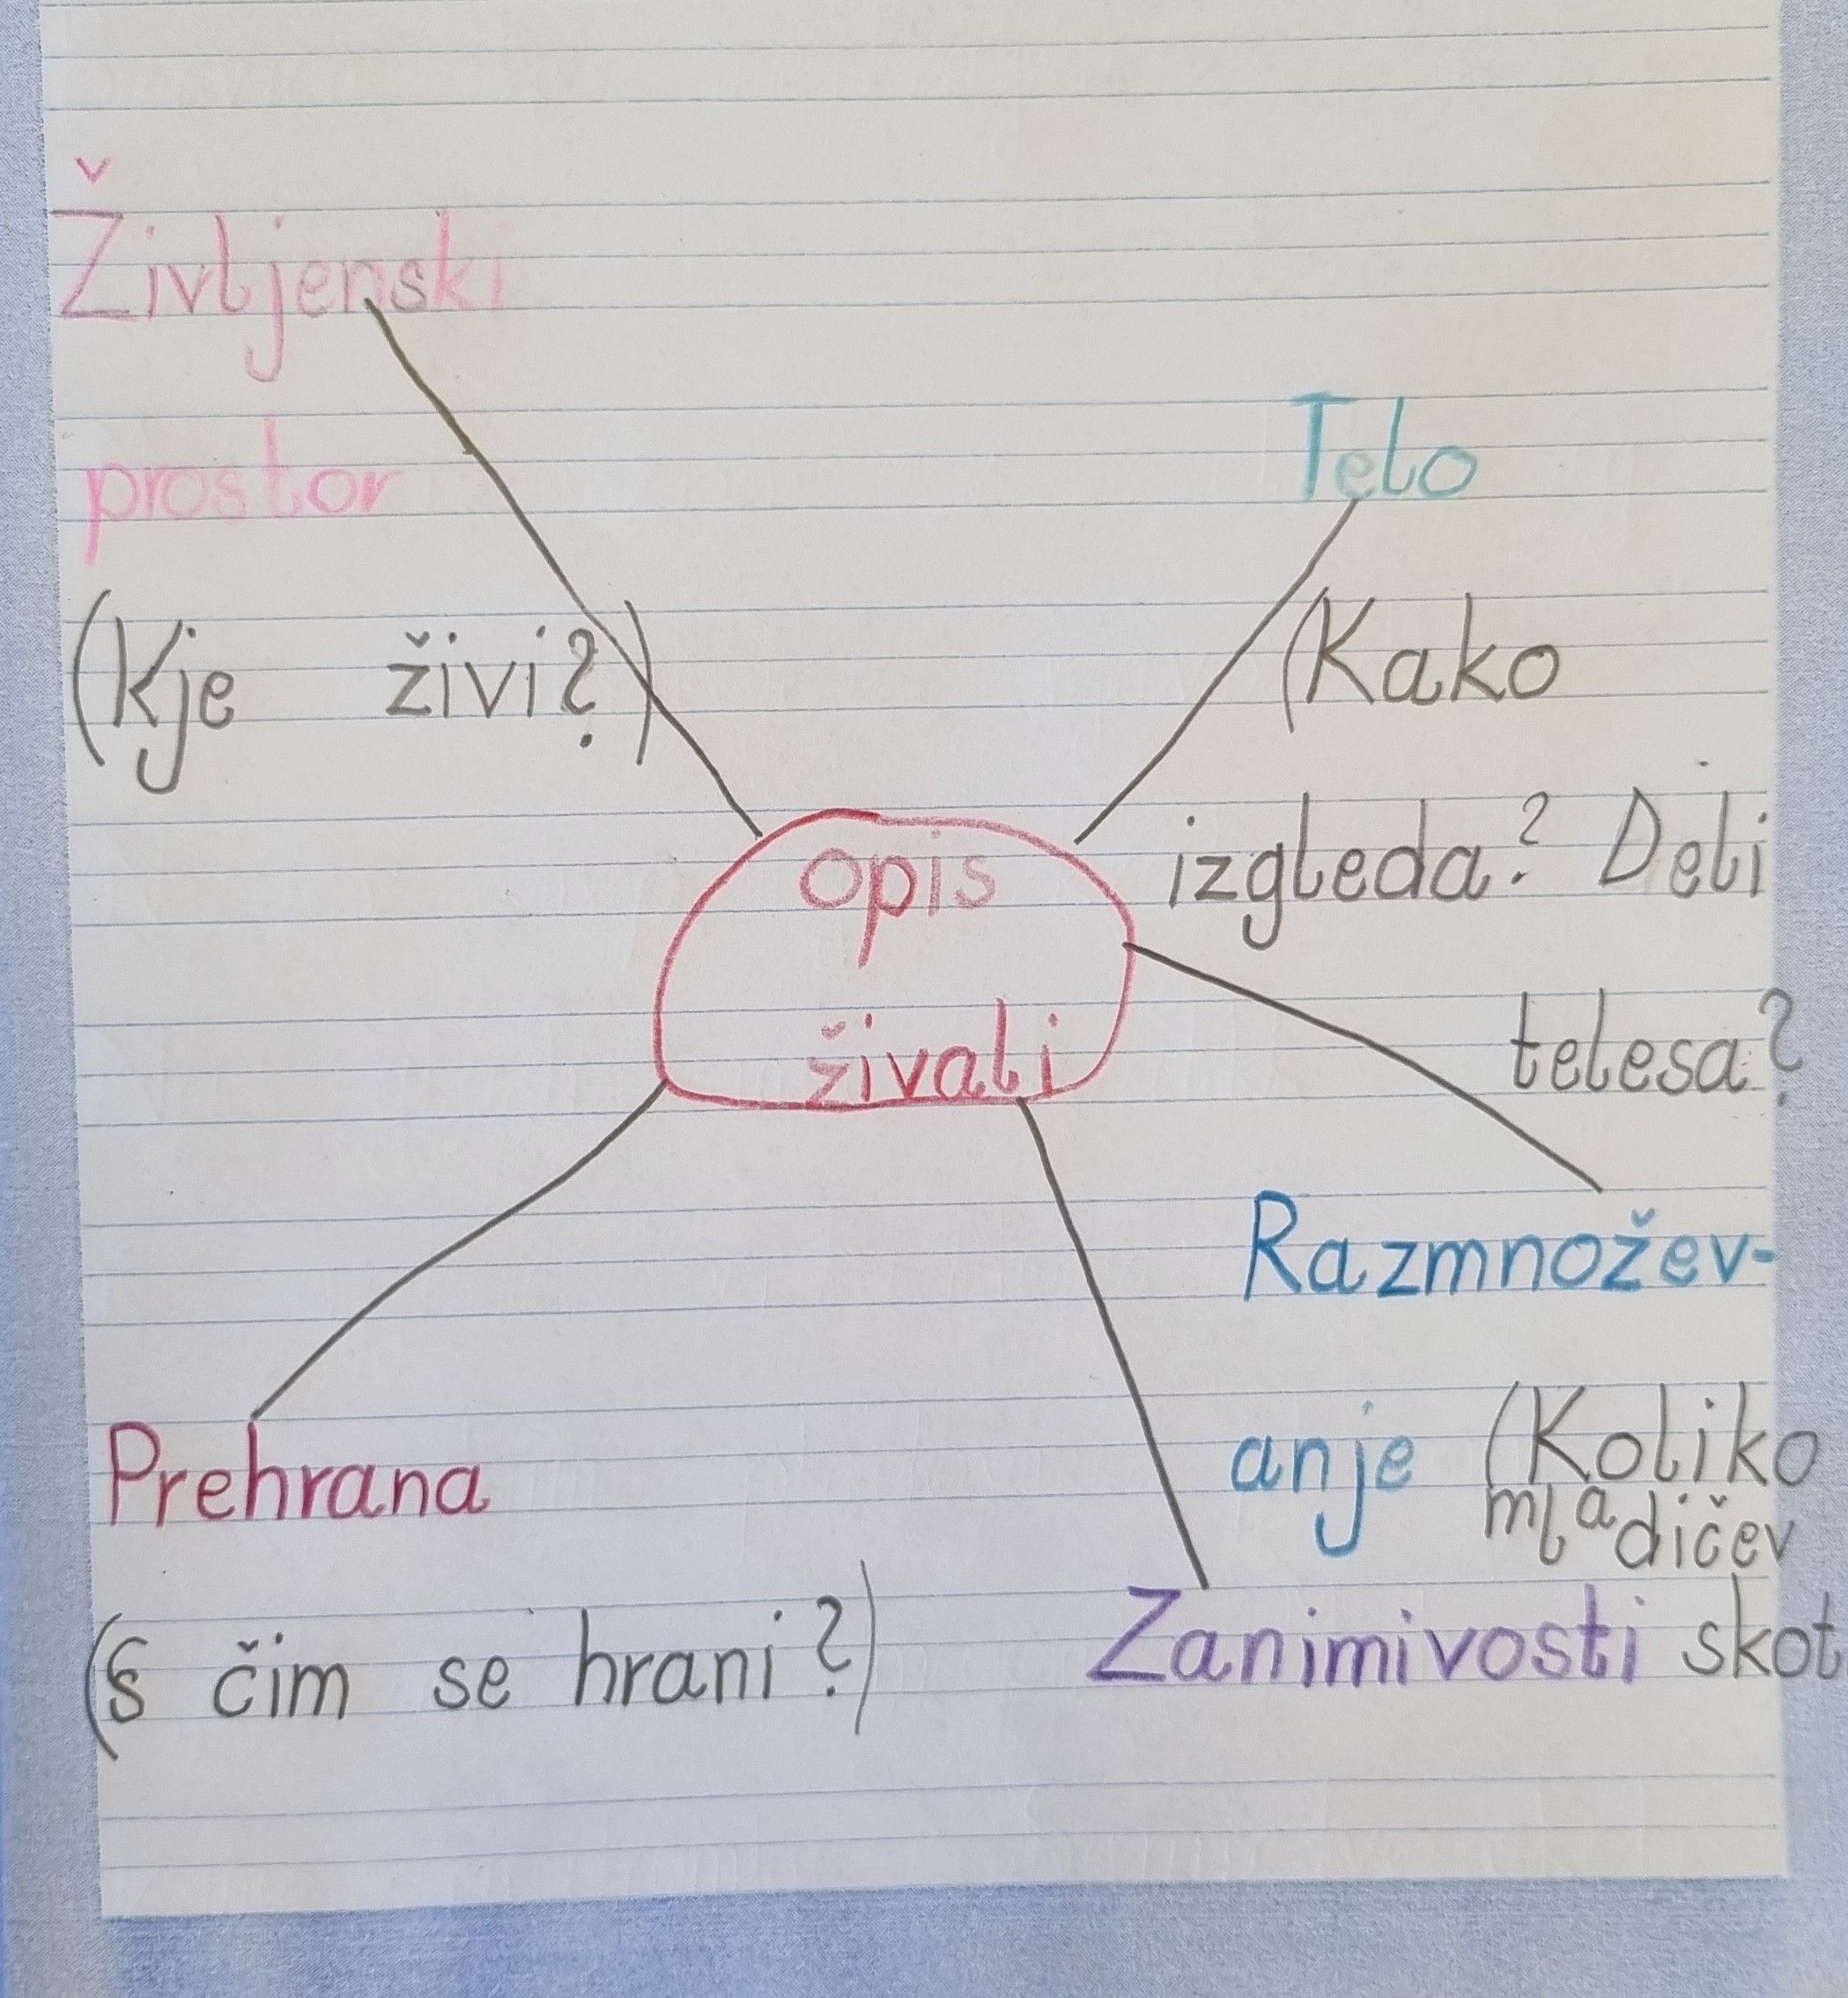 Življenski
prostor
(Kje živi?)
Telo
(Kako
izgleda? Deli
telesa?
opis
živali
Razmnožev-
anje (Koliko
mladičev
skot
Zanimivosti
Prehrana
(S čim se hrani?)